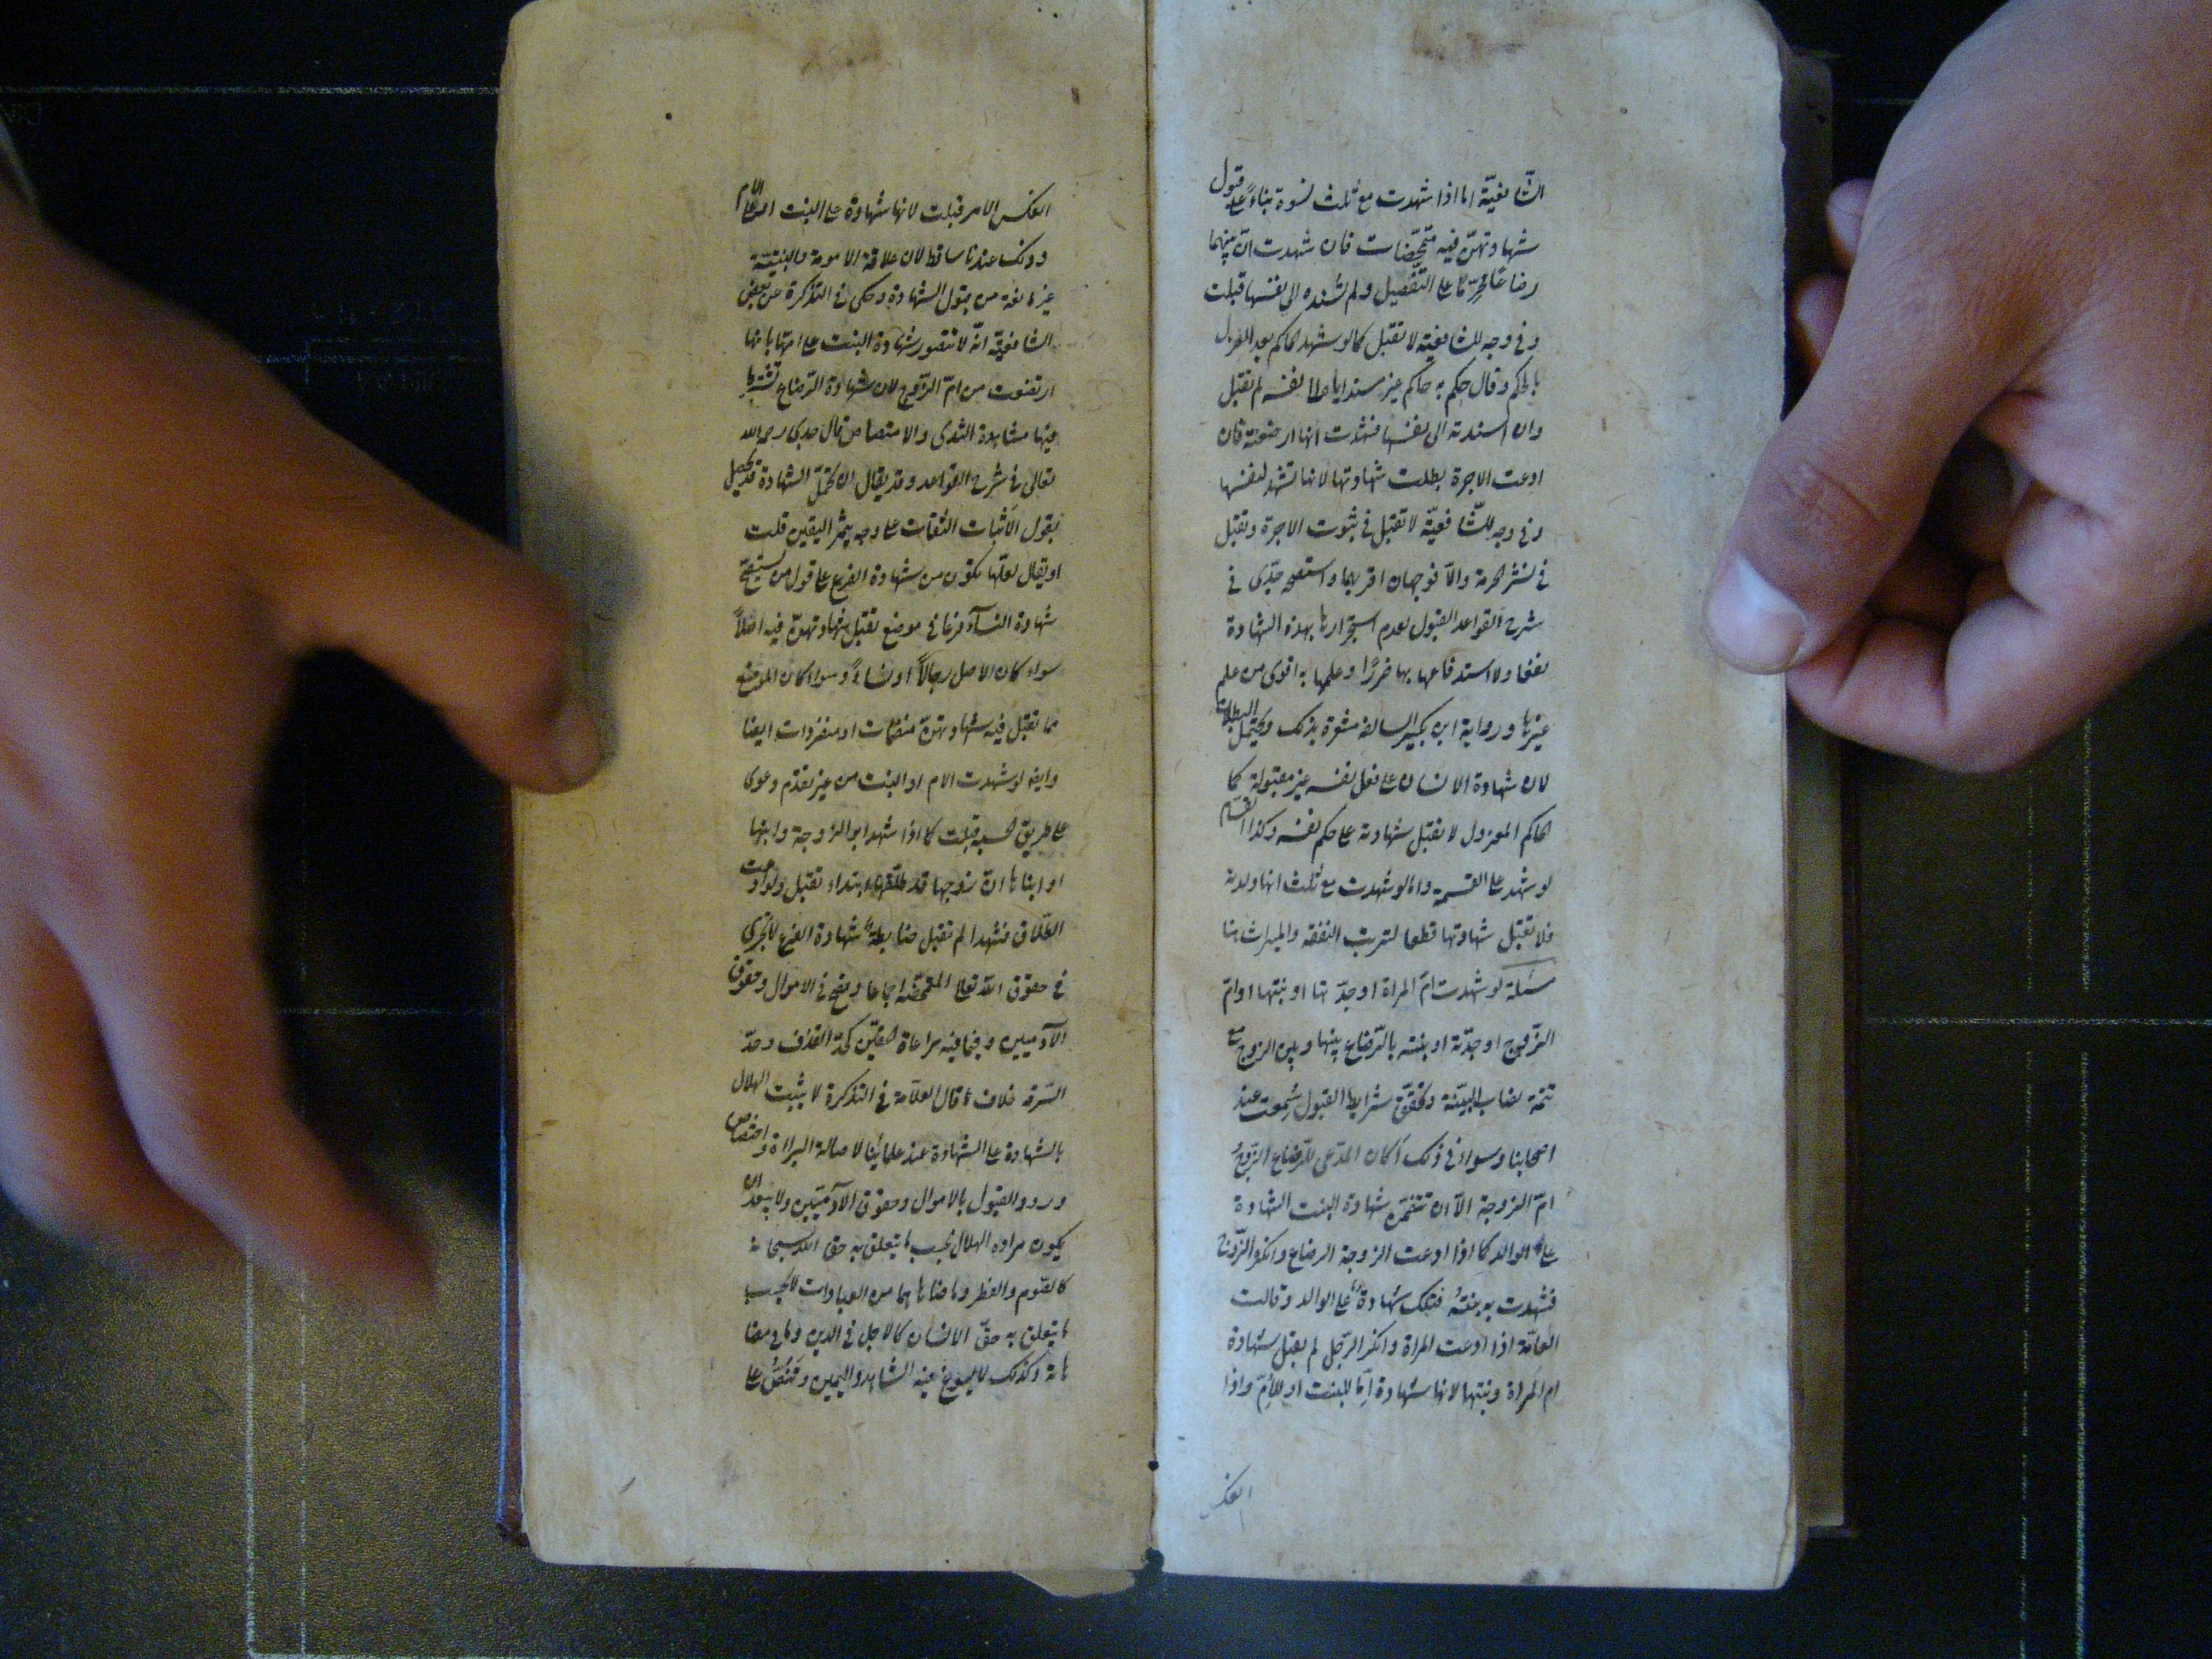 الشافعيّة اما اذا شهدت مع ثلث نسوة بناءً على قبول
شهادتهنّ فيه متمحّضات فان شهدت انّ بينهما
رضاعًا محرّمًا على التفصيل ولم تسنده الى نفسها قبلت
وفى وجه للشافعية لا تقبل كما لو شهد الحاكم بعد العزل
بالحكم وقال حكم به حاكم غير مسند اياه الى نفسه لم تقبل
وان اسندته الى نفسها فشهدت انها ارضعته فان
ادعت الاجرة بطلت شهادتها لانها تشهد لنفسها
وفى وجه للشّافعيّة لا تقبل فى ثبوت الاجرة وتقبل
فى نشر الحرمة والّا فوجهان اقربهما واستصحه جدّى فى
شرح القواعد القبول لعدم استجرارها بهذه الشهادة
نفعا ولا استدفاعها بها ضررًا وعلمها به اقوى من علم
غيرها ورواية ابن بكير السالفة مشعرة بذلك ويحتمل البطلان
لان شهادة الانسان على فعل نفسه غير مقبولة كما
الحاكم المعزول لا تقبل شهادته على حكم نفسه وكذا القسّام
لو شهد على القسمة واما لو شهدت مع ثلث انها ولدته
فلا تقبل شهادتها قطعا لترتب النفقه والميراث هنا
مسئلة لو شهدت امّ المراة او جدّتها او بنتها او امّ
الزّوج او جدّته او بنته بالرّضاع بينها وبين الزوج مع
تتمة نصاب البيّنة وتحقّق شرايط القبول سُمِعت عند
اصحابنا وسواء فى ذلك أكان المدّعى للرّضاع الزّوجُ
امّ الزوجة الّا ان تتضمّن شهادة البنت الشهادة
على الوالد كما اذا ادعت الزوجة الرضاع وانكر الزّوج
فشهدت به بنتهُ فتلك شهادةٌ على الوالد وقالت
العامّة اذا ادعت المراة وانكر الرّجل لم يقبل شهادة
ام المراة وبنتها لانها شهادة امّا للبنت او للأمّ واذا
انعكس
انعكس الامر قبلت لانها شهادة على البنت او على الام
وذلك عندنا ساقط لان علاقة الامومة والبنتيّة
غير مانعة من قبول الشهادة وحكى فى التذكرة عن بعض
الشافعيّة انّه لا تتصور شهادة البنت على امّها بانها
ارتضعت من امّ الزّوج لان شهادة الرّضاع تشترط
فيها مشاهدة الثدى والامتصاص قال جدى رحمه الله
تعالى فى شرح القواعد وقد يقال ان تحمّل الشهادة قد يحصل
بقول الأثبات الثقات على وجه يثمر اليقين قلت
او يقال لعلّها تكون من شهادة الفرع على قول من يستصحّ
شهادة النساء فرعا فى موضع تقبل شهادتهنّ فيه اصلًا
سواء كان الاصل رجالًا او نساءً وسواء كان الموضع
مما تقبل فيه شهادتهنّ منضمّات او منفردات ايضا
وايضا لو شهدت الام او البنت من غير تقدّم دعوى
على طريق الحسبه قبلت كما اذا شهد ابو الزوجة وابنها
او ابناها انّ زوجها قد طلّقها ابتداء تقبل ولو ادعت
الطّلاق فشهدا لم تقبل ضابطةٌ شهادة الفرع لا تجرى
فى حقوق الله تعالى المتمحّضة اجماعا وتصح فى الاموال وحقوق
الآدميين وفيما فيه مراعاة الحقّين كحدّ القذف وحدّ
السّرقه خلاف ما قال العلّامة فى التذكرة لا يثبت الهلال
بالشهادة على الشهادة عند علمائنا لاصالة البراءة واختصاص
ورود القبول بالاموال وحقوق الآدميّين ولا يبعد ان
يكون مراده الهلال بحسب ما يتعلق به حق الله سبحانه
كالصّوم والفطر وما ضاهاهما من العبادات لا بحسب
ما يتعلق به حقّ الانسان كالاجل فى الدين وما فى مضا
هاته وكذلك لا يسوغ فيه الشاهد واليمين وتنصّ على